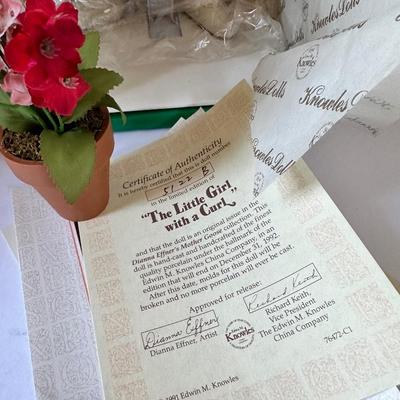 Knowles Dolls
Knowles
Certificate of Authenticity
It is hereby certified that this is doll number
5122 B
in the limited edition of
"The Little Girl
with a Curl"
and that the doll is an original issue in the
Dianna Effner's Mother Goose collection. This
doll is hand-cast and handcrafted of the finest
quality porcelain under the hallmark of the
Edwin M. Knowles China Company, in an
edition that will end on December 31, 1992.
After this date, molds for this doll will be
broken and no more porcelain will ever be cast.
Approved for release:
Dianna Effner
Dianna Effner, Artist
Knowles
Richard Keith
Richard Keith,
Vice President
The Edwin M. Knowles
China Company
76472-C1
1991 Edwin M. Knowles